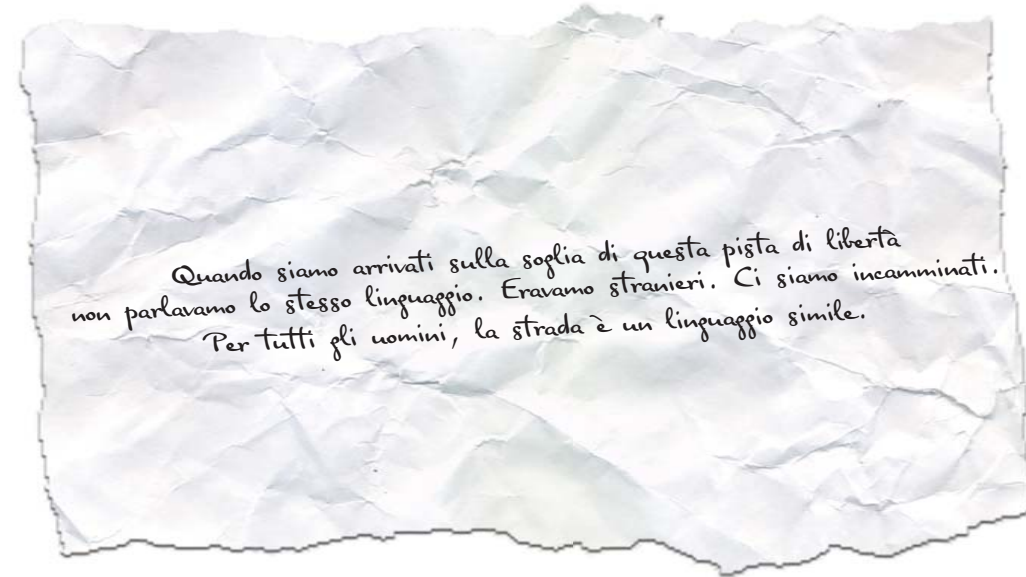 Quando siamo arrivati sulla soglia di questa pista di libertà
non parlavamo lo stesso linguaggio. Eravamo stranieri. Ci siamo incamminati.
Per tutti gli uomini, la strada è un linguaggio simile.